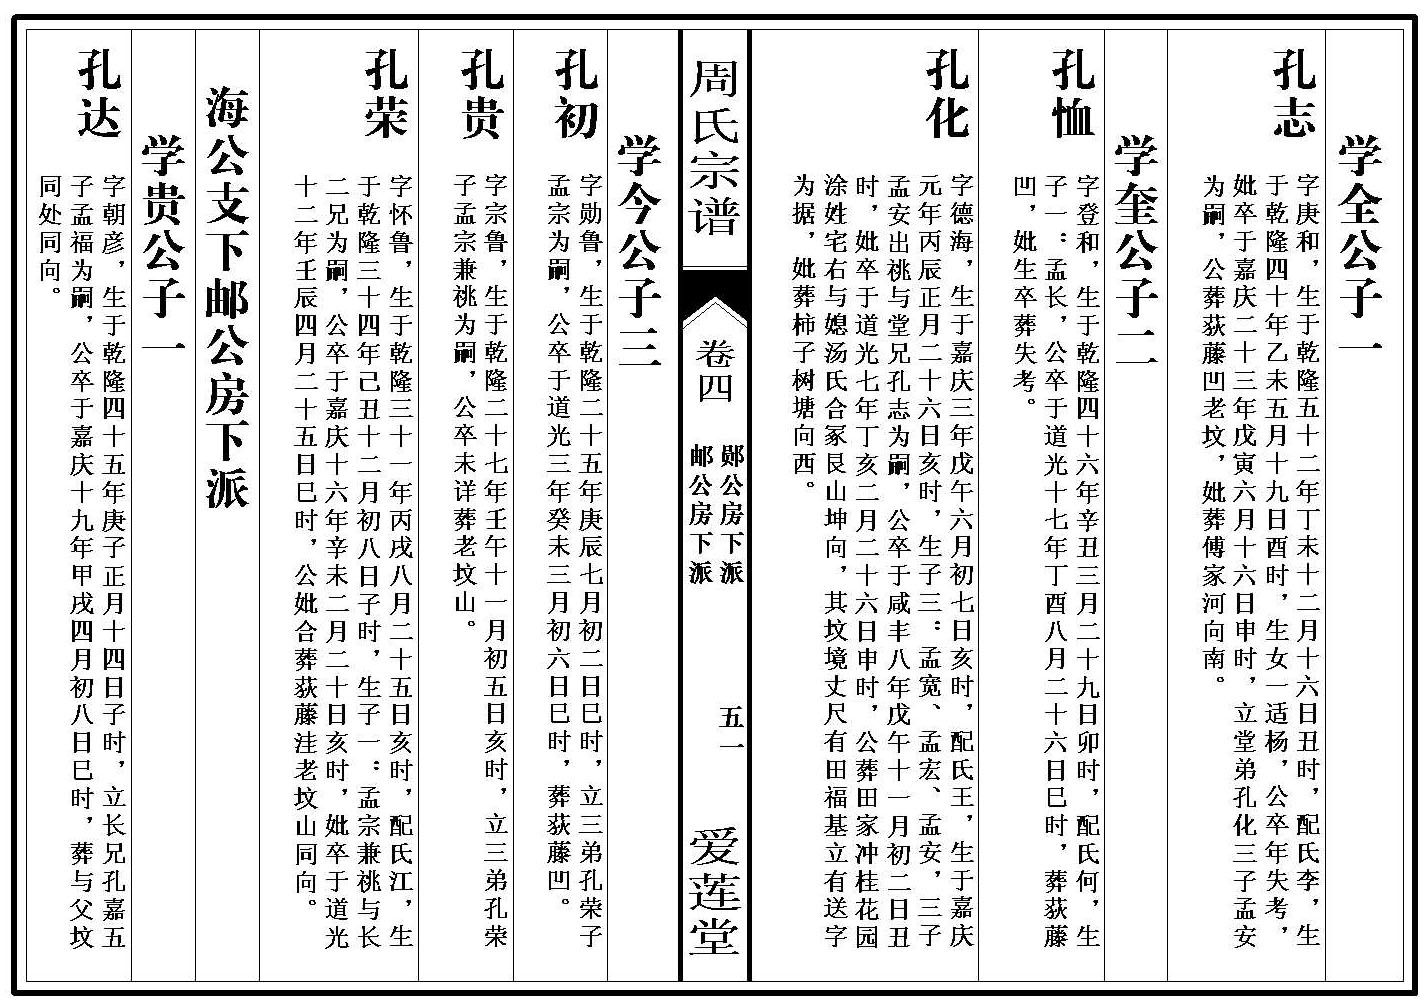 学全公子一
孔志
字庚和，生于乾隆五十二年丁未十二月十六日丑时，配氏李，生
于乾隆四十年乙未五月十九日酉时，生女一适杨，公卒年失考，
妣卒于嘉庆二十三年戊寅六月十六日申时，立堂弟孔化三子孟安
为嗣，公葬荻藤凹老坟，妣葬傅家河向南。
学奎公子二
孔恤
字登和，生于乾隆四十六年辛丑三月二十九日卯时，配氏何，生
子一：孟长，公卒于道光十七年丁酉八月二十六日巳时，葬荻藤
凹，妣生卒葬失考。
孔化
字德海，生于嘉庆三年戊午六月初七日亥时，配氏王，生于嘉庆
元年丙辰正月二十六日亥时，生子三：孟宽、孟宏、孟安，三子
孟安出祧与堂兄孔志为嗣，公卒于咸丰八年戊午十一月初二日丑
时，妣卒于道光七年丁亥二月二十六日申时，公葬田家冲桂花园
涂姓宅右与媳汤氏合冢艮山坤向，其坟境丈尺有田福基立有送字
为据，妣葬柿子树塘向西。
周氏宗谱
卷四
郧公房下派
邮公房下派
五一
爱莲堂
学今公子三
孔初
字勋鲁，生于乾隆二十五年庚辰七月初二日巳时，立三弟孔荣子
孟宗为嗣，公卒于道光三年癸未三月初六日巳时，葬荻藤凹。
孔贵
字宗鲁，生于乾隆二十七年壬午十一月初五日亥时，立三弟孔荣
子孟宗兼祧为嗣，公卒未详葬老坟山。
孔荣
字怀鲁，生于乾隆三十一年丙戌八月二十五日亥时，配氏江，生
于乾隆三十四年己丑十二月初八日子时，生子一：孟宗兼祧与长
二兄为嗣，公卒于嘉庆十六年辛未二月二十日亥时，妣卒于道光
十二年壬辰四月二十五日巳时，公妣合葬荻藤洼老坟山同向。
海公支下邮公房下派
学贵公子一
孔达
字朝彦，生于乾隆四十五年庚子正月十四日子时，立长兄孔嘉五
子孟福为嗣，公卒于嘉庆十九年甲戌四月初八日巳时，葬与父坟
同处同向。